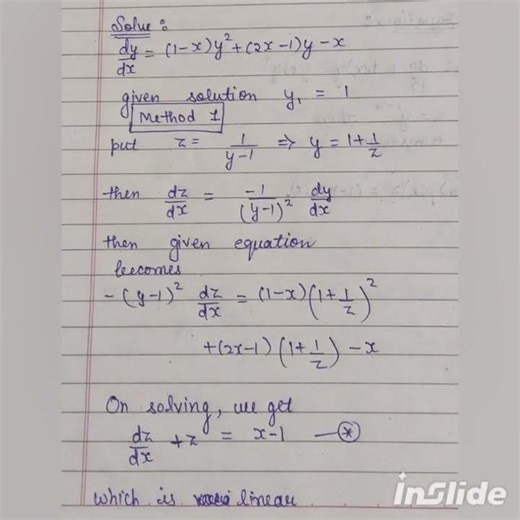 Solve :
dy/dx = (1-x)y² + (2x-1)y - x
given solution y₁ = 1
Method 1
put z = 1/(y-1) ⇒ y = 1+1/z
then dz/dx = -1/(y-1)² dy/dx
then given equation
becomes
-(y-1)² dz/dx = (1-x)(1+1/z)²
+(2x-1)(1+1/z) - x
On solving, we get
dz/dx + z = x-1 —⊛
which is linear
inSlide